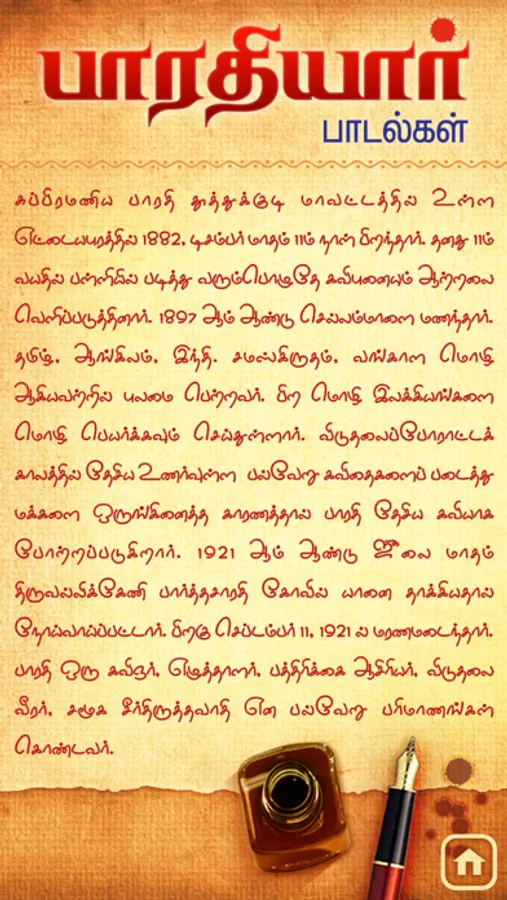 பாரதியார்
பாடல்கள்
சுப்பிரமணிய பாரதி தூத்துக்குடி மாவட்டத்தில் உள்ள
எட்டையபுரத்தில் 1882, டிசம்பர் மாதம் 11ம் நாள் பிறந்தார். தனது 11ம்
வயதில் பள்ளியில் படித்து வரும்பொழுதே கவிபுனையும் ஆற்றலை
வெளிப்படுத்தினார். 1897 ஆம் ஆண்டு செல்லம்மாளை மணந்தார்.
தமிழ், ஆங்கிலம், இந்தி, சமஸ்கிருதம், வங்காள மொழி
ஆகியவற்றில் புலமை பெற்றவர். பிற மொழி இலக்கியங்களை
மொழி பெயர்க்கவும் செய்துள்ளார். விடுதலைப்போராட்டக்
காலத்தில் தேசிய உணர்வுள்ள பல்வேறு கவிதைகளைப் படைத்து
மக்களை ஒருங்கிணைத்த காரணத்தால் பாரதி தேசிய கவியாக
போற்றப்படுகிறார். 1921 ஆம் ஆண்டு ஜூலை மாதம்
திருவல்லிக்கேணி பார்த்தசாரதி கோவில் யானை தாக்கியதால்
நோய்வாய்ப்பட்டார். பிறகு செப்டம்பர் 11, 1921 ல் மரணமடைந்தார்.
பாரதி ஒரு கவிஞர், எழுத்தாளர், பத்திரிக்கை ஆசிரியர், விடுதலை
வீரர், சமூக சீர்திருத்தவாதி என பல்வேறு பரிமாணங்கள்
கொண்டவர்.